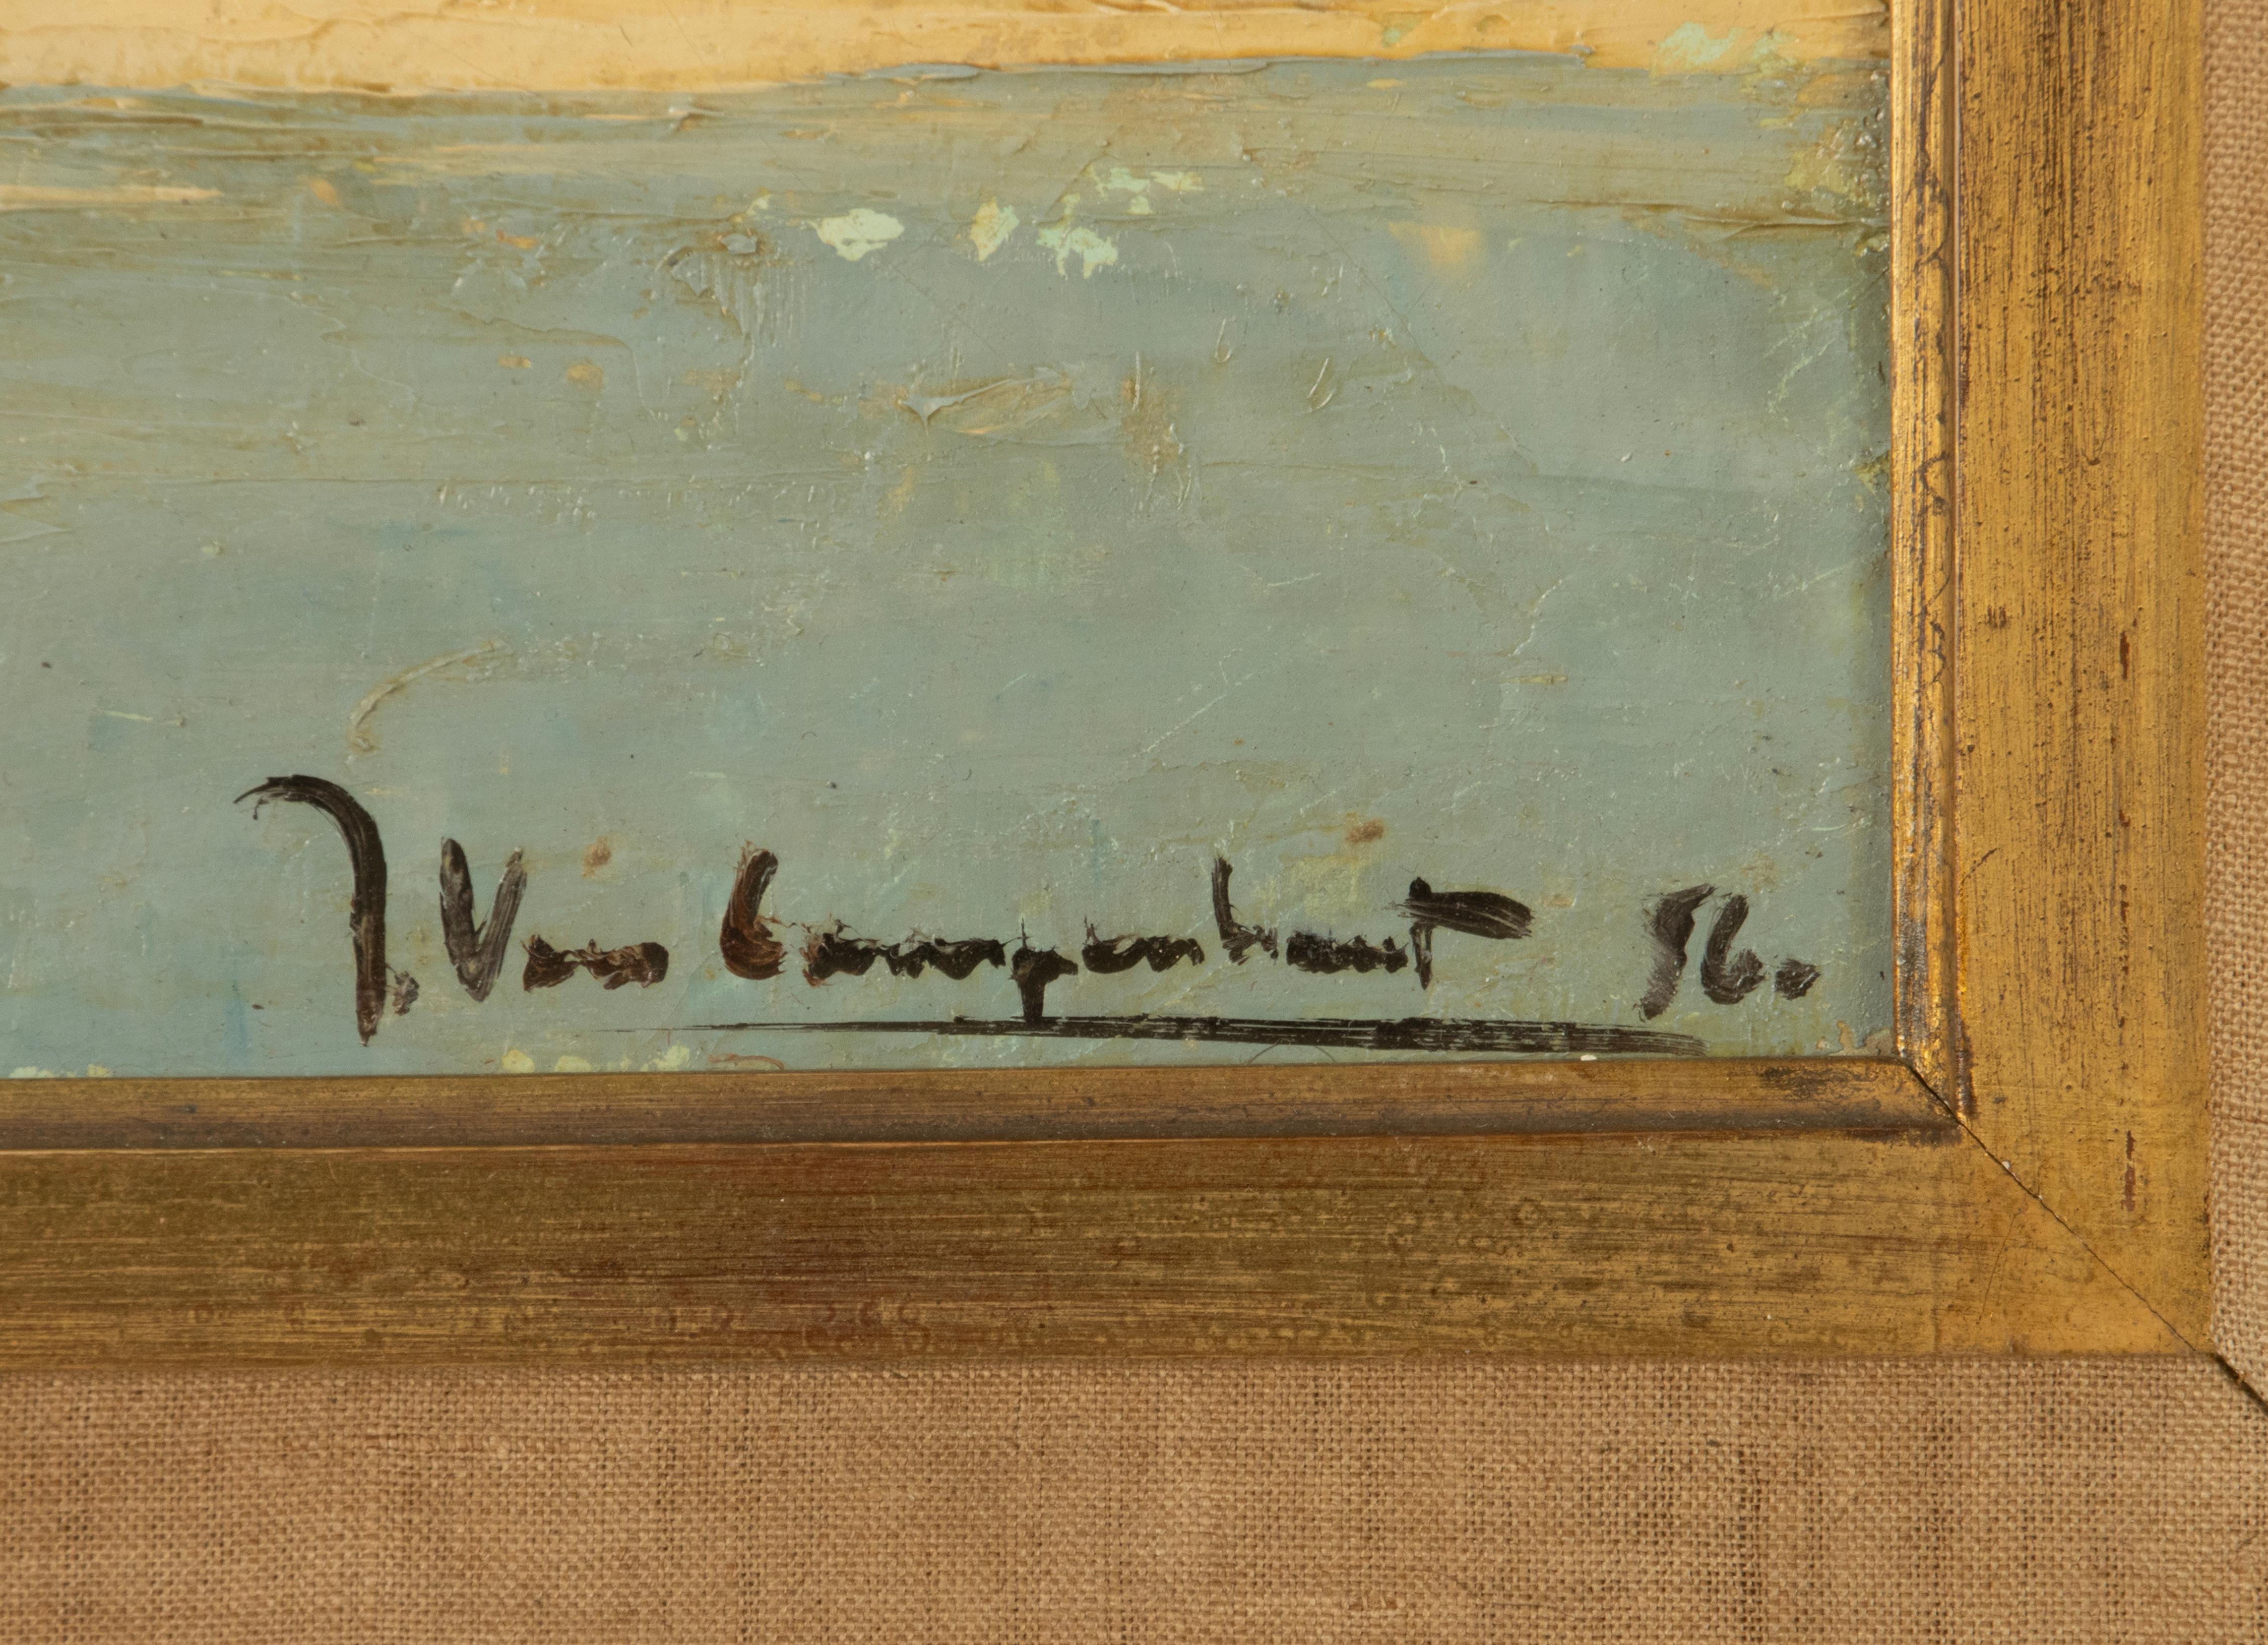 J. Van Campenhout 56.